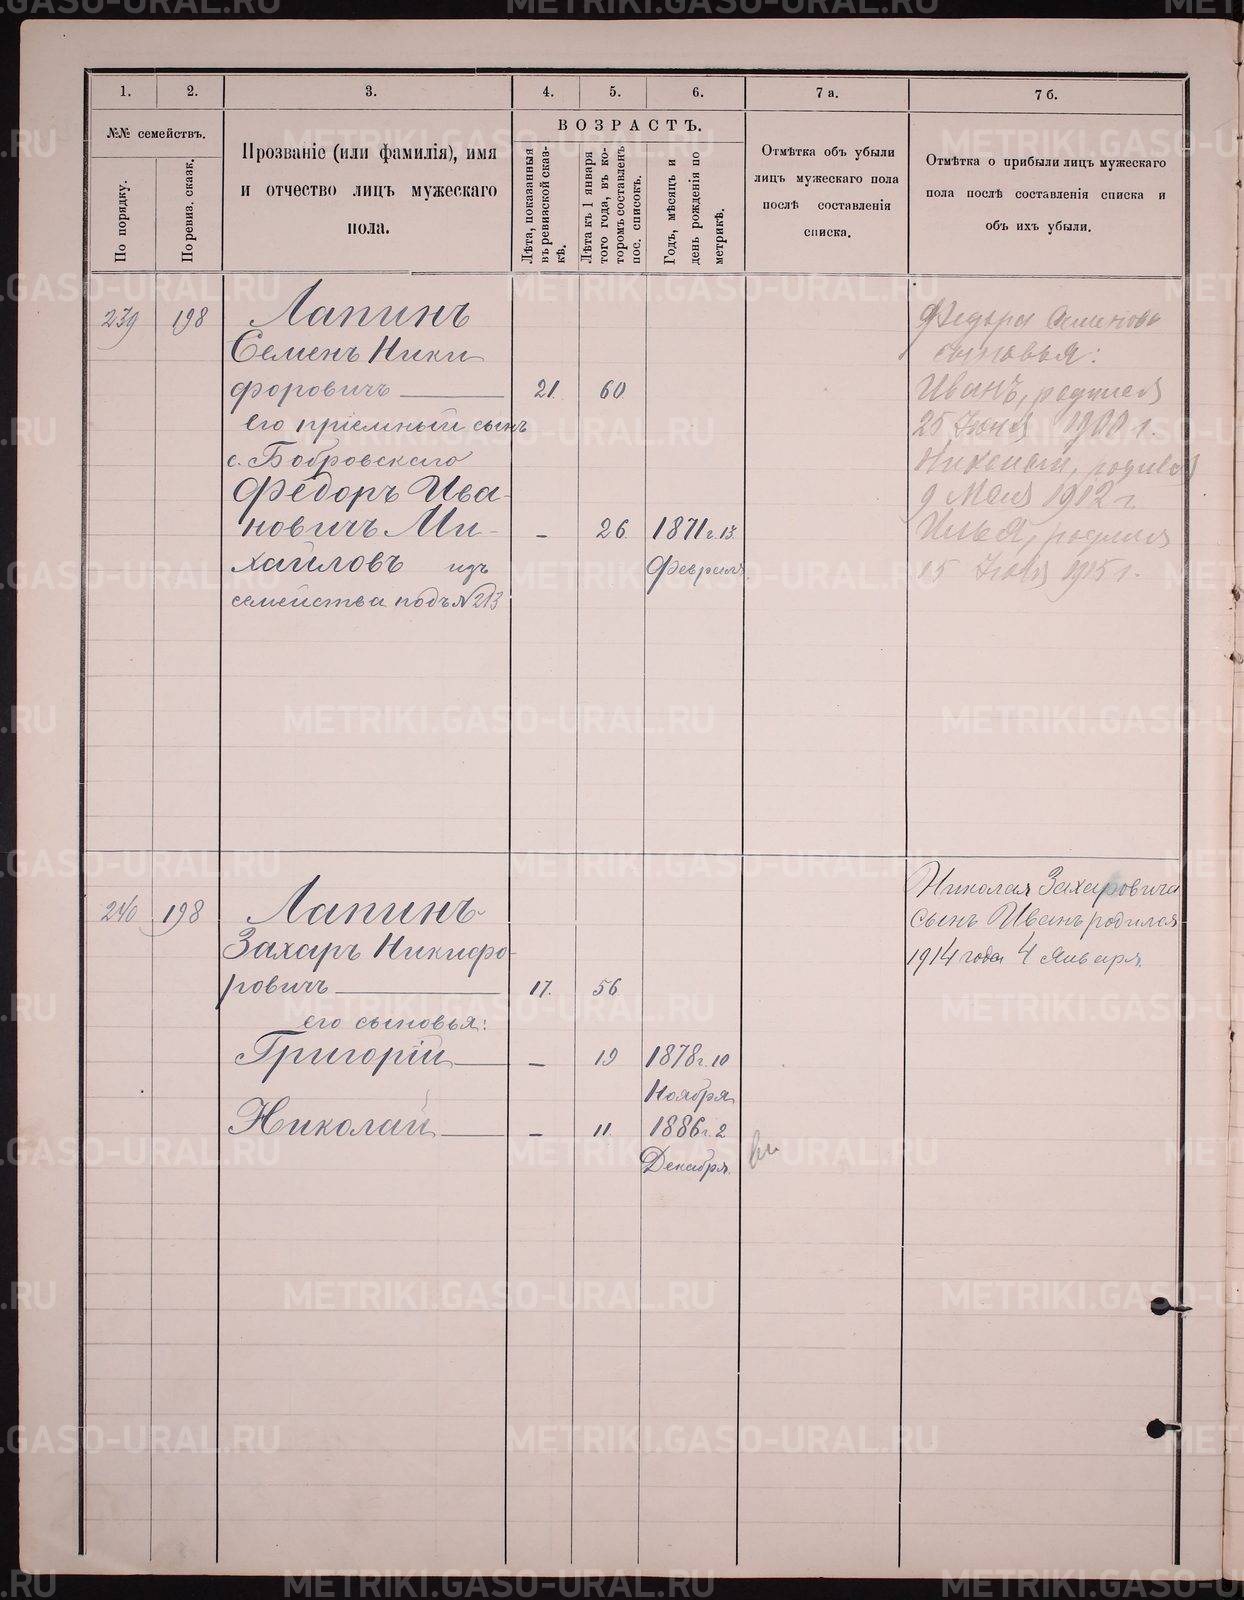 1.
2.
3.
4.
5.
6.
7 а.
7 б.
№№ семействъ.
По порядку.
По ревиз. сказк.
Прозваніе (или фамилія), имя
и отчество лицъ мужескаго
пола.
ВОЗРАСТЪ.
Лѣта, показанныя
въ ревизской сказ-
кѣ.
Лѣта къ 1 января
того года, въ ко-
торомъ составленъ
пос. списокъ.
Годъ, мѣсяцъ и
день рожденія по
метрикѣ.
Отмѣтка объ убыли
лицъ мужескаго пола
послѣ составленія
списка.
Отмѣтка о прибыли лицъ мужескаго
пола послѣ составленія списка и
объ ихъ убыли.
239 198 Лапинъ
Семенъ Ники
форовичъ — 21. 60
его пріемный сынъ
с. Бобровскаго
Федоръ Ива-
новичъ Ми- – 26. 1871 г. 13
хайловъ изъ Февраля.
семейства подъ № 213
Федора Семенова
сыновья:
Иванъ, родился
25 Іюня 1900 г.
родился
9 Мая 1912 г
Илья, родился
15 1915 г.
240 198 Лапинъ
Захаръ Никифо-
ровичъ — 17. 56
его сыновья:
Григорій — – 19 1878 г. 10
Ноября
Николай — – 11. 1886 г. 2
Декабря.
Николая Захаровича
сынъ Иванъ родился
1914 года 4 Января.
METRIKI.GASO-URAL.RU